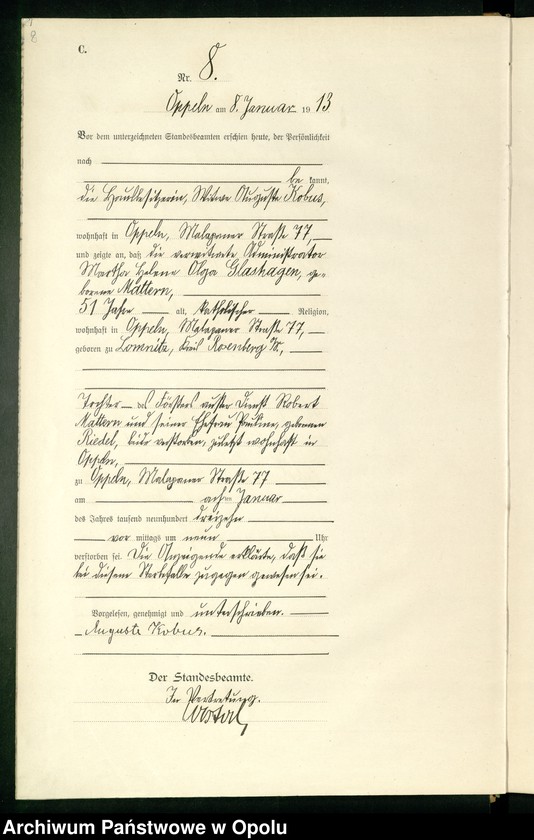 8
C.
Nr. 8.
Oppeln am 8. Januar 1913
Vor dem unterzeichneten Standesbeamten erschien heute, der Persönlichkeit
nach
be kannt,
die Hausbesitzerin, Witwe Auguste Kobus,
wohnhaft in Oppeln, Malapaner Straße 77,
und zeigte an, daß die verwitwete Administrator
Martha Helene Olga Glashagen, ge-
borene Mattern,
51 Jahre alt, katholischer Religion,
wohnhaft in Oppeln, Malapaner Straße 77,
geboren zu Lomnitz, Kreis Rosenberg O/S.,
Tochter des Försters außer Dienst Robert
Mattern und seiner Ehefrau Pauline, geborenen
Riedel, beide verstorben, zuletzt wohnhaft in
Oppeln,
zu Oppeln, Malapaner Straße 77
am achten Januar
des Jahres tausend neunhundert dreizehn
vor mittags um neun Uhr
verstorben sei. Die Anzeigende erklärte, daß sie
bei diesem Sterbefalle zugegen gewesen sei.
Vorgelesen, genehmigt und unterschrieben.
Auguste Kobus.
Der Standesbeamte.
In Vertretung.
Archiwum Państwowe w Opolu